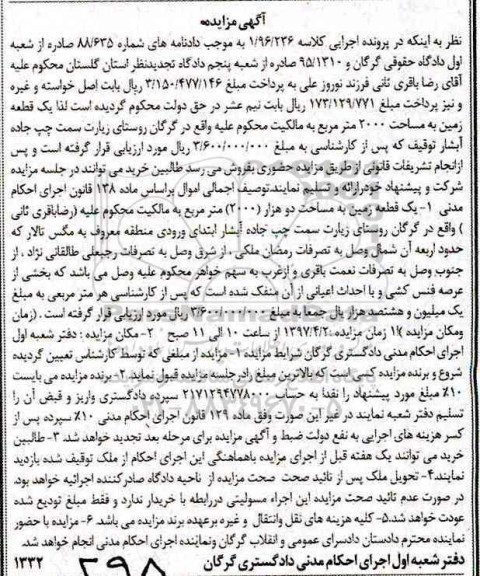 آگهی مزایده
نظر به اینکه در پرونده اجرایی کلاسه ۱/۹۶/۲۳۶ به موجب دادنامه های شماره ۸۸/۶۳۵ صادره از شعبه
اول دادگاه حقوقی گرگان و ۹۵/۱۳۱۰ صادره از شعبه پنجم دادگاه تجدیدنظر استان گلستان محکوم علیه
آقای رضا باقری ثانی فرزند نوروز علی به پرداخت مبلغ ۳/۱۵۰/۴۷۷/۱۴۶ ریال بابت اصل خواسته و غیره
و نیز پرداخت مبلغ ۱۷۳/۱۲۹/۷۷۱ ریال بابت نیم عشر در حق دولت محکوم گردیده است لذا یک قطعه
زمین به مساحت ۲۰۰۰ متر مربع به مالکیت محکوم علیه واقع در گرگان روستای زیارت سمت چپ جاده
آبشار توقیف که پس از کارشناسی به مبلغ ۳/۶۰۰/۰۰۰/۰۰۰ ریال مورد ارزیابی قرار گرفته است و پس
ازانجام تشریفات قانونی از طریق مزایده حضوری بفروش می رسد طالبین خرید می توانند در جلسه مزایده
شرکت و پیشنهاد خودراارائه و تسلیم نمایند.توصیف اجمالی اموال براساس ماده ۱۳۸ قانون اجرای احکام
مدنی ۱- یک قطعه زمین به مساحت دو هزار (۲۰۰۰) متر مربع به مالکیت محکوم علیه (رضاباقری ثانی
) واقع در گرگان روستای زیارت سمت چپ جاده آبشار ابتدای ورودی منطقه معروف به مگس تالار که
حدود اربعه آن شمال وصل به تصرفات رمضان ملکی ، از شرق وصل به تصرفات رجبعلی طالقانی نژاد ، از
جنوب وصل به تصرفات نعمت باقری و ازغرب به سهم خواهر محکوم علیه وصل می باشد که بخشی از
عرصه فنس کشی و یا احداث اعیانی از آن منفک شده است که پس از کارشناسی هر متر مربعی به مبلغ
یک میلیون و هشتصد هزار ریال جمعا به مبلغ ۳/۶۰۰/۰۰۰/۰۰۰ ریال مورد ارزیابی قرار گرفته است . (زمان
ومکان مزایده )۱- زمان مزایده :۱۳۹۷/۴/۲ از ساعت ۱۰ الی ۱۱ صبح ۲- مکان مزایده : دفتر شعبه اول
اجرای احکام مدنی دادگستری گرگان شرایط مزایده ۱-مزایده از مبلغی که توسط کارشناس تعیین گردیده
شروع و برنده مزایده کسی است که بالاترین مبلغ رادر جلسه مزایده قبول نماید. ۲-برنده مزایده می بایست
۱۰٪ مبلغ مورد پیشنهاد را نقدا به حساب سپرده دادگستری واریز و قبض آن را
تسلیم دفتر شعبه نمایند در غیر این صورت وفق ماده ۱۲۹ قانون اجرای احکام مدنی ۱۰٪ سپرده پس از
کسر هزینه های اجرایی به نفع دولت ضبط و آگهی مزایده برای مرحله بعد تجدید خواهد شد. ۳- طالبین
خرید می توانند یک هفته قبل از اجرای مزایده باهماهنگی این اجرای احکام از ملک توقیف شده بازدید
نمایند.۴- تحویل ملک پس از تائید صحت صحت مزایده از ناحیه دادگاه صادرکننده اجرائیه خواهد بود.
در صورت عدم تائید صحت مزایده این اجراء مسولیتی دررابطه با خریدار ندارد و فقط مبلغ تودیع شده
عودت خواهد شد.۵- کلیه هزینه های نقل وانتقال و غیره برعهده برند مزایده می باشد. ۶- مزایده با حضور
نماینده محترم دادستان دادسرای عمومی و انقلاب گرگان ونماینده اجرای احکام مدنی انجام خواهد شد.
دفتر شعبه اول اجرای احکام مدنی دادگستری گرگان ۱۳۳۲
۲۹۸